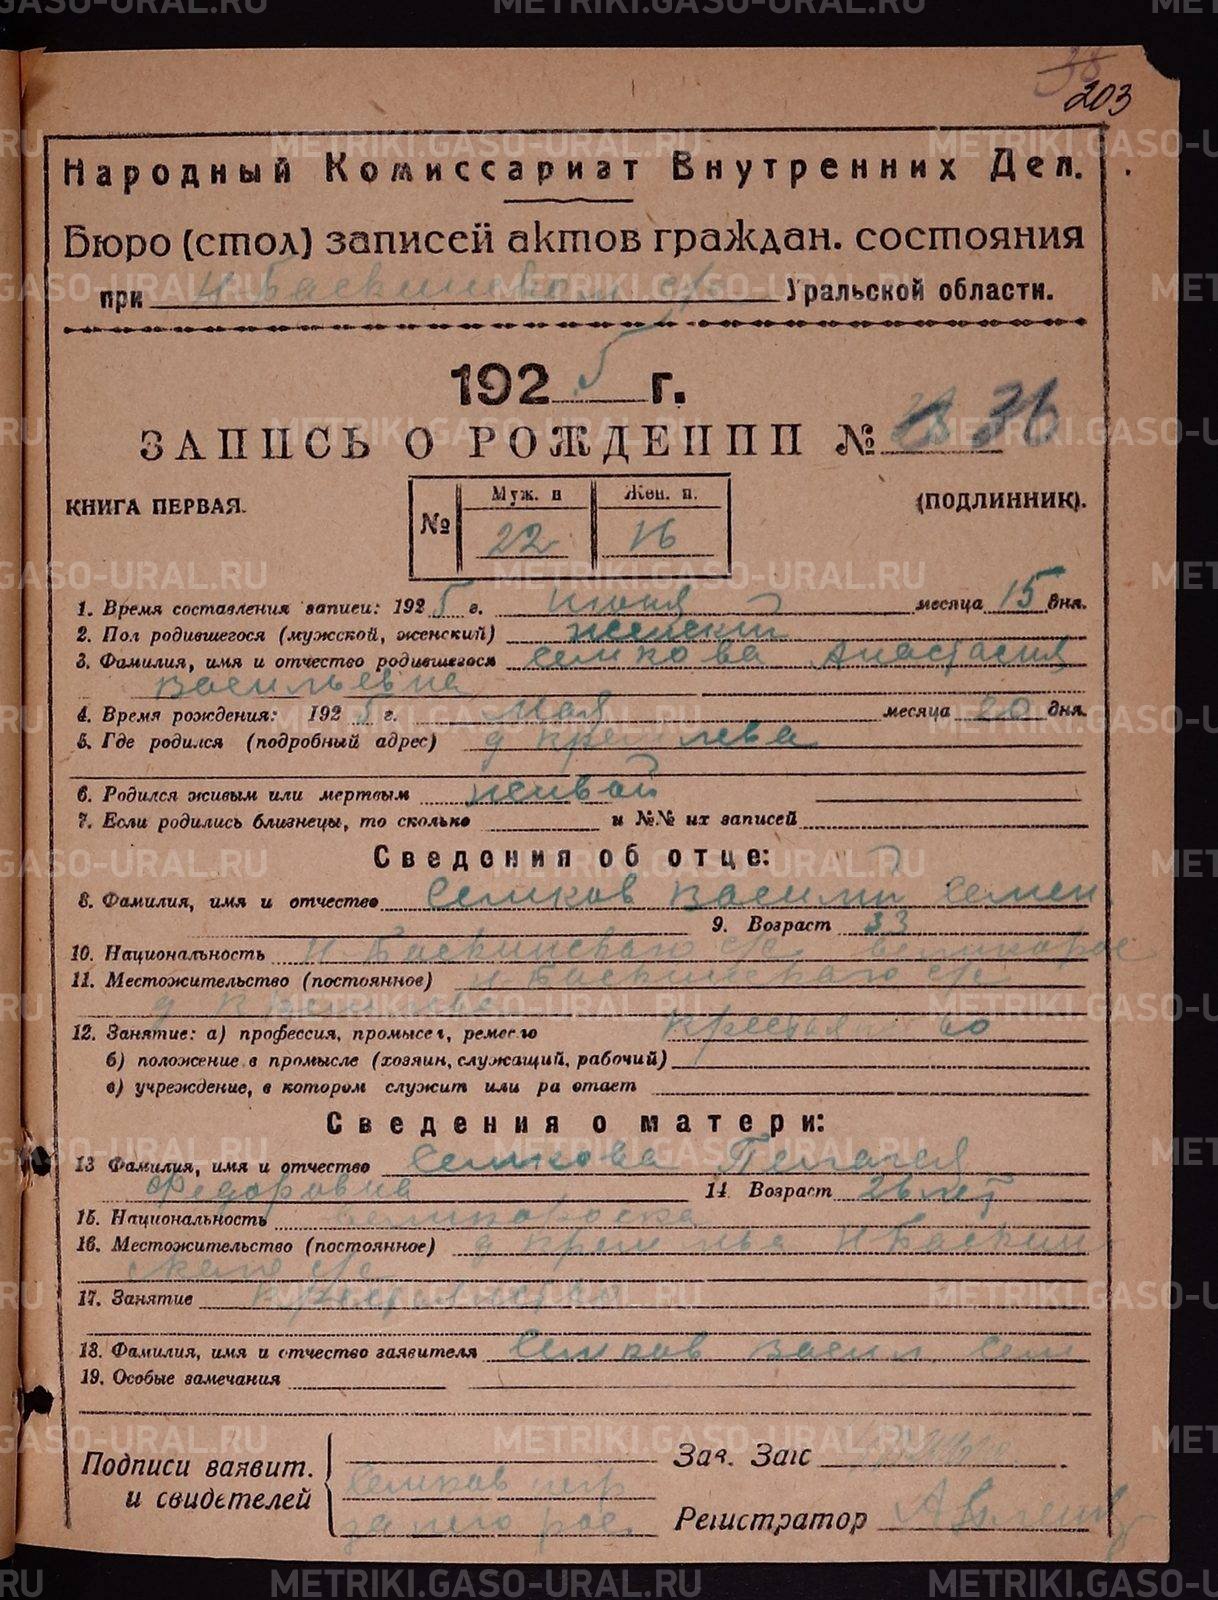 38
203
Народный Комиссариат Внутренних Дел.
Бюро (стол) записей актов граждан. состояния
при Н-Баскинском с/с Уральской области.
1925 г.
ЗАПИСЬ О РОЖДЕНИИ № 36
КНИГА ПЕРВАЯ.
(ПОДЛИННИК).
№ Муж. п Жен. п.
22 16
1. Время составления записи: 1925 г. июня месяца 15 дня.
2. Пол родившегося (мужской, женский) женский
3. Фамилия, имя и отчество родившегося Семкова Анастасия
Васильевна
4. Время рождения: 1925 г. Мая месяца 20 дня.
5. Где родился (подробный адрес) д
6. Родился живым или мертвым живой
7. Если родились близнецы, то сколько и №№ их записей
Сведения об отце:
8. Фамилия, имя и отчество Семков Василий Семен
9. Возраст 33
10. Национальность Н-Баскинского с/с великорос
11. Местожительство (постоянное) Н Баскинского с/с
д
12. Занятие: а) профессия, промысел, ремесло крестьянство
б) положение в промысле (хозяин, служащий, рабочий)
в) учреждение, в котором служит или ра отает
Сведения о матери:
13 Фамилия, имя и отчество Семкова Пелагея
Федоровна 14. Возраст 26 лет
15. Национальность великороска
16. Местожительство (постоянное) д Н Баскин
ского с/с
17. Занятие крестьянство
18. Фамилия, имя и отчество заявителя Семков Васил Сем
19. Особые замечания
Подписи заявит. и свидетелей
Семков
за него рос.
Зав. Загс
Регистратор
METRIKI.GASO-URAL.RU